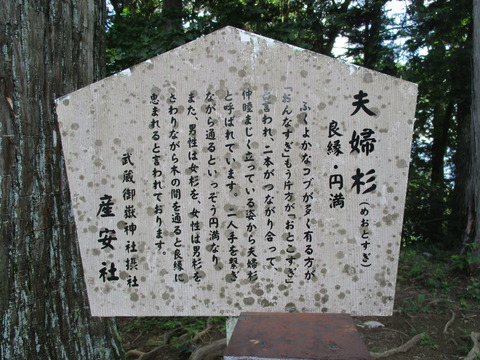 夫婦杉(めおとすぎ)
良縁・円満
ふくよかなコブが多く有る方が
「おんなすぎ」もう片方が「おとこすぎ」
と言われ、二本がつながり合って、
仲睦まじく立っている姿から夫婦杉
と呼ばれています。二人手を繋ぎ
ながら通るといっそう円満なり
また、男性は女杉を、女性は男杉を
さわりながら木の間を通ると良縁に
恵まれると言われております。
武蔵御嶽神社摂社
産安社